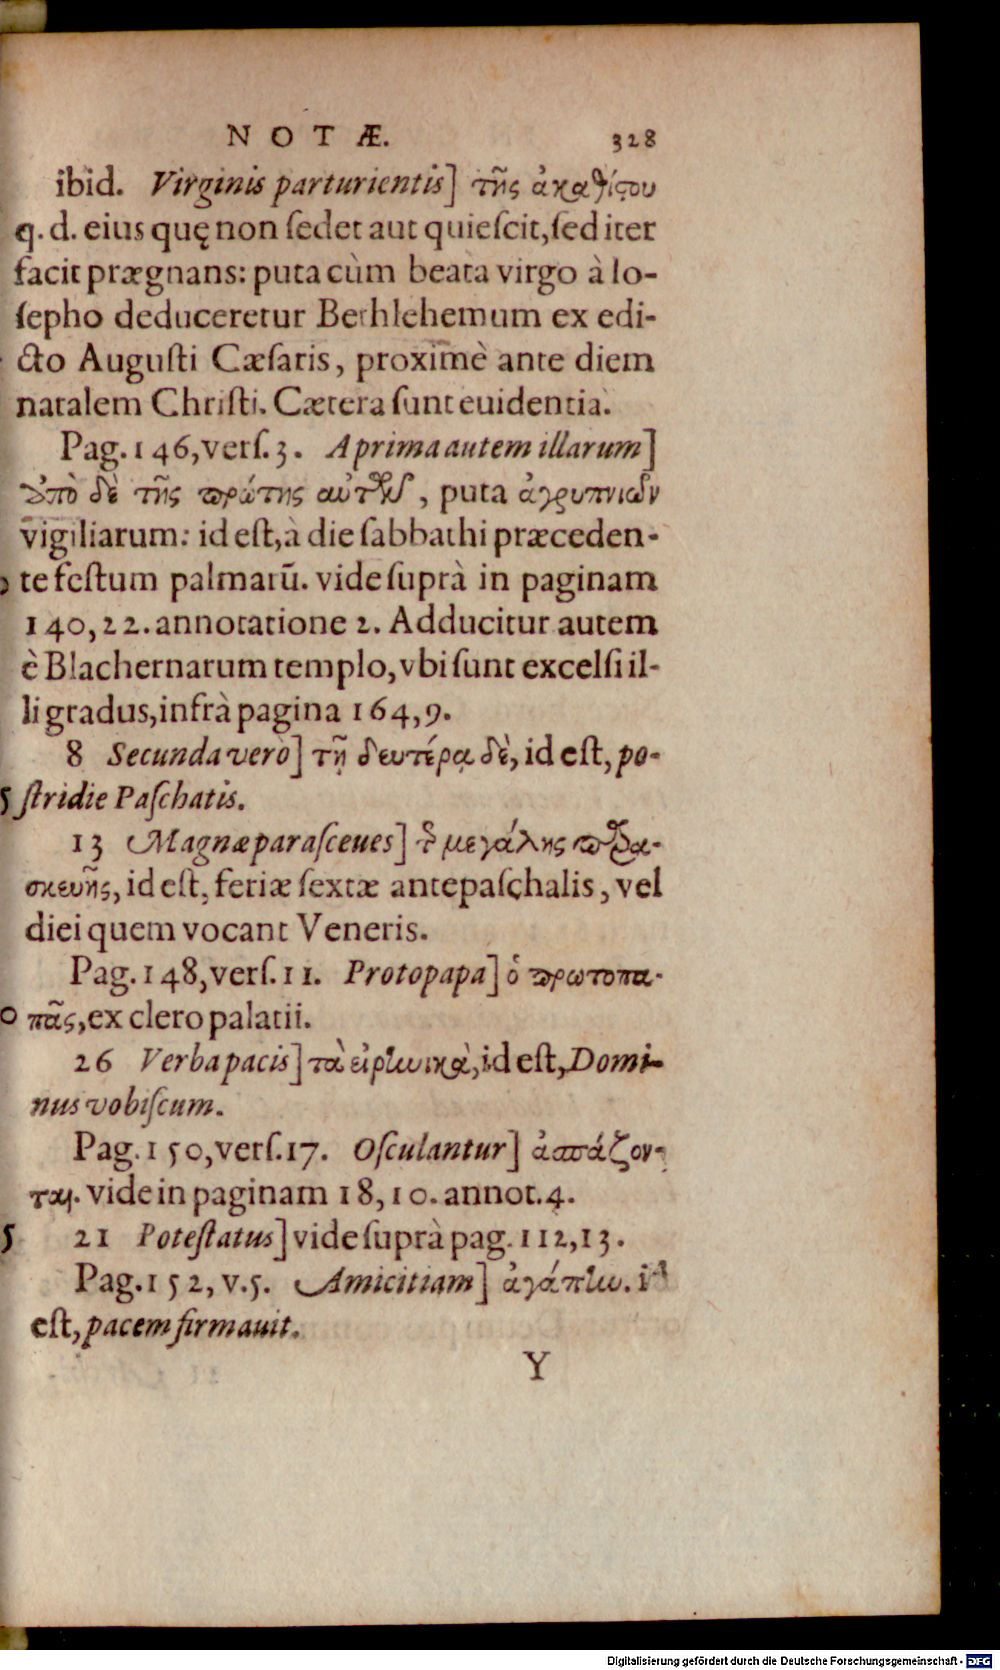 NOTÆ. 328
ibid. Virginis parturientis] τῆς ἀκαθίϛου
q. d. eius quę non ſedet aut quieſcit, ſed iter
facit prægnans: puta cùm beata virgo à Io-
ſepho deduceretur Bethlehemum ex edi-
cto Auguſti Cæſaris, proximè ante diem
natalem Chriſti. Cætera ſunt euidentia.
Pag. 146, verſ. 3. A prima autem illarum]
ἀπὸ δὲ τῆς πρώτης αὐτῶν, puta ἀγρυπνιῶν
vigiliarum: id eſt, à die ſabbathi præceden-
te feſtum palmarū. vide ſuprà in paginam
140, 22. annotatione 2. Adducitur autem
è Blachernarum templo, vbi ſunt excelſi il-
li gradus, infrà pagina 164, 9.
8 Secunda verò] τῇ δευτέρᾳ δὲ, id eſt, po-
5 ſtridie Paſchatis.
13 Magnæ paraſceues] τ̃ μεγάλης παρα-
σκευῆς, id eſt, feriæ ſextæ antepaſchalis, vel
diei quem vocant Veneris.
Pag. 148, verſ. 11. Protopapa] ὁ πρωτοπα-
0 πᾶς, ex clero palatii.
26 Verba pacis] τὰ εἰρηνικὰ, id eſt, Domi-
nus vobiſcum.
Pag. 150, verſ. 17. Oſculantur] ἀσπάζον-
ται. vide in paginam 18, 10. annot. 4.
5 21 Poteſtatus] vide ſuprà pag. 112, 13.
Pag. 152, v. 5. Amicitiam] ἀγάπην. id
eſt, pacem firmauit.
Y
Digitalisierung gefördert durch die Deutsche Forschungsgemeinschaft - DFG